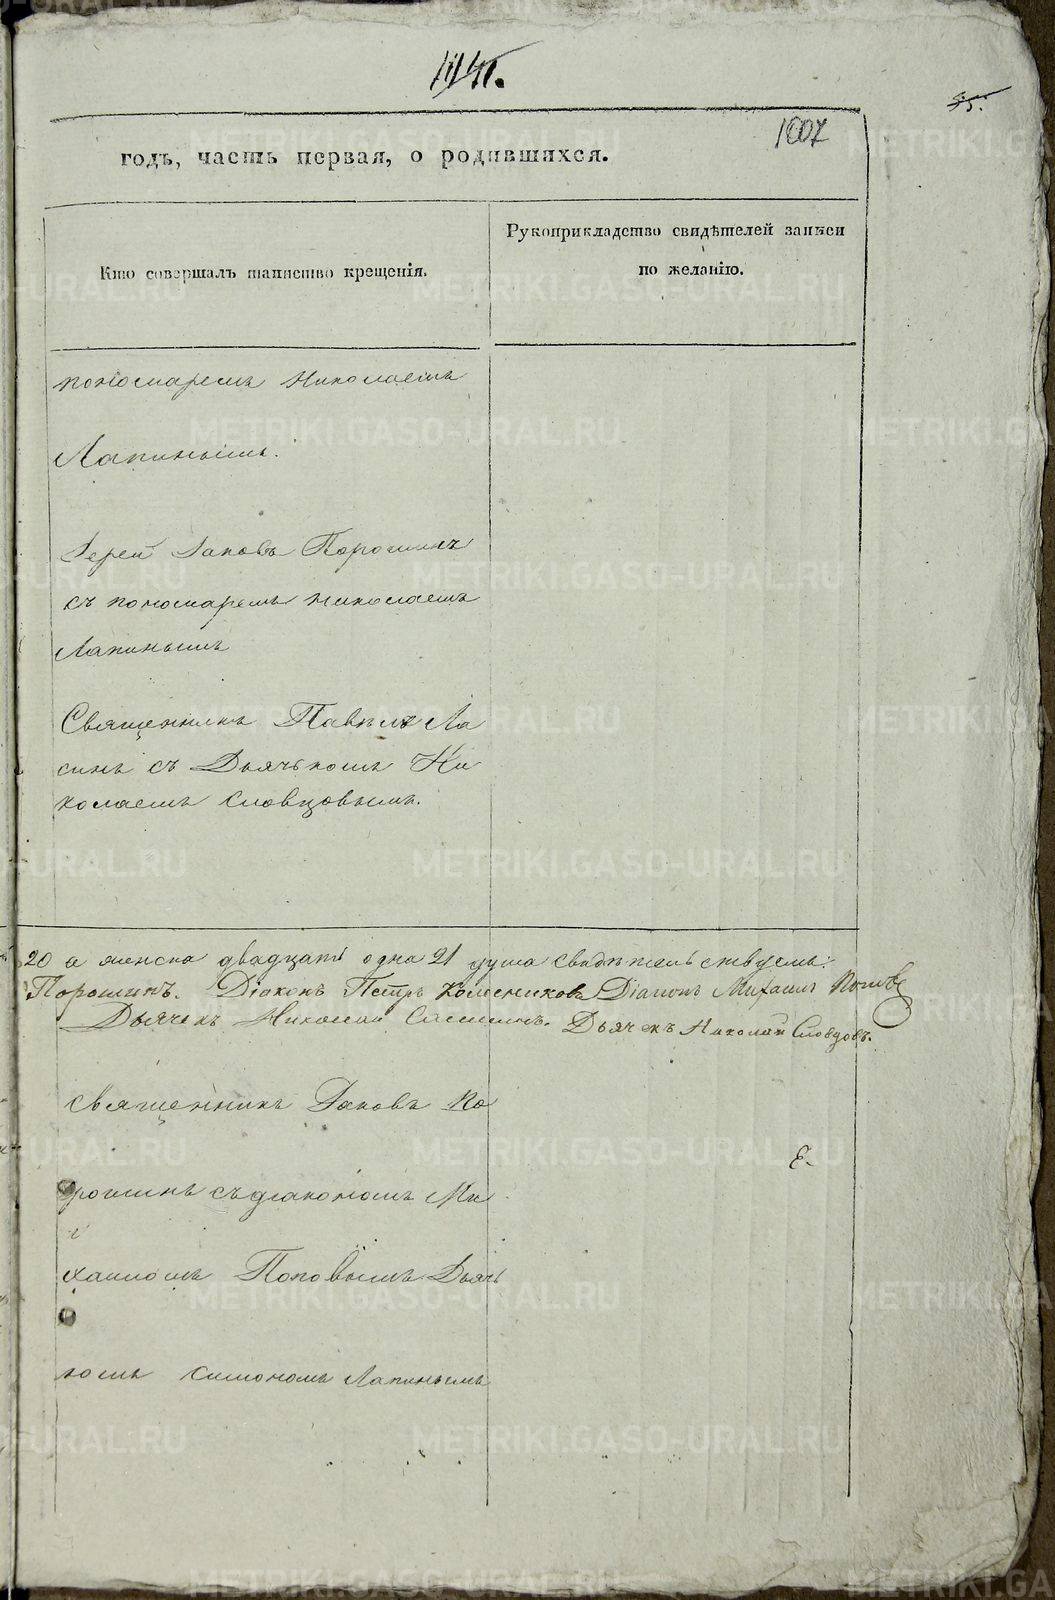 1007
годъ, часть первая, о родившихся.
Кто совершалъ таинство крещенія.
Рукоприкладство свидѣтелей записи
по желанію.
пономаремъ Николаемъ
Лапинымъ.
Іерей Іаковъ Порошинъ
съ пономаремъ Николаемъ
Лапинымъ
Священникъ Павелъ Ла
синъ съ Дьячькомъ Ни
колаемъ Словцовымъ.
20 а женска двадцать одна 21 душа свидѣтельствуемъ:
Порошинъ. Діаконъ Петръ Колесниковъ Діаконъ Михаилъ Поповъ
Дьячекъ Николай Дьячекъ Николай Словцовъ.
священникъ Іаковъ По
рошинъ съ діакономъ Ми
хаиломъ Поповымъ Дьячь
комъ Симономъ Лапинымъ
METRIKI.GASO-URAL.RU